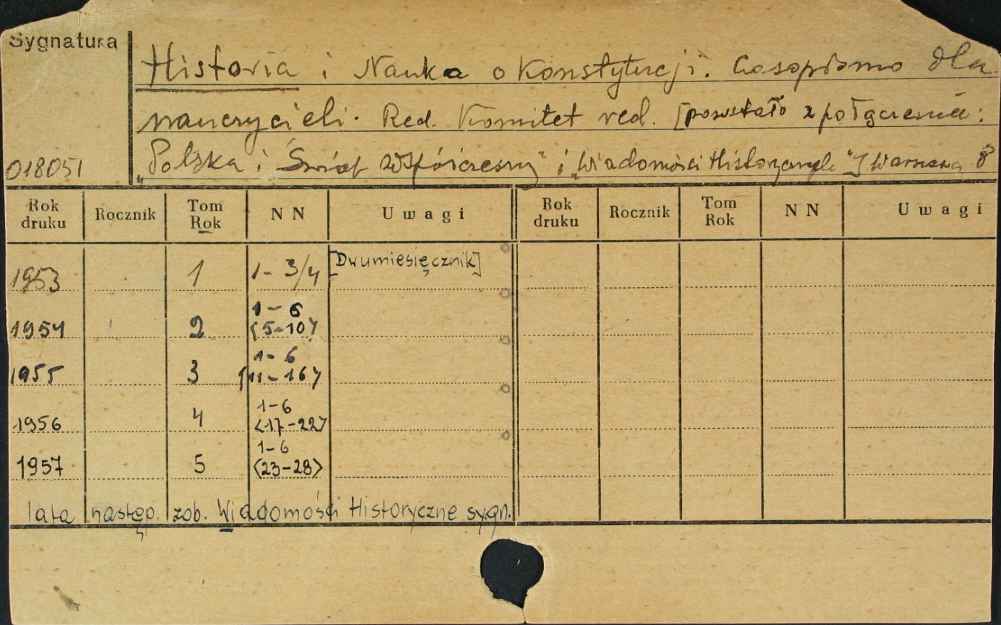 Sygnatura
Historia i Nauka o Konstytucji. Czasopismo dla
nauczycieli. Red. Komitet red. [powstało z połączenia:
018051 „Polska i Świat Współczesny" i „Wiadomości Historyczne"] Warszawa 8°
Rok druku Rocznik Tom Rok NN Uwagi Rok druku Rocznik Tom Rok NN Uwagi
1953 1 1-3/4 [Dwumiesięcznik]
1954 2 1-6 (5-10)
1955 3 1-6 (11-16)
1956 4 1-6 <17-22>
1957 5 1-6 <23-28>
lata następ. zob. Wiadomości Historyczne sygn.